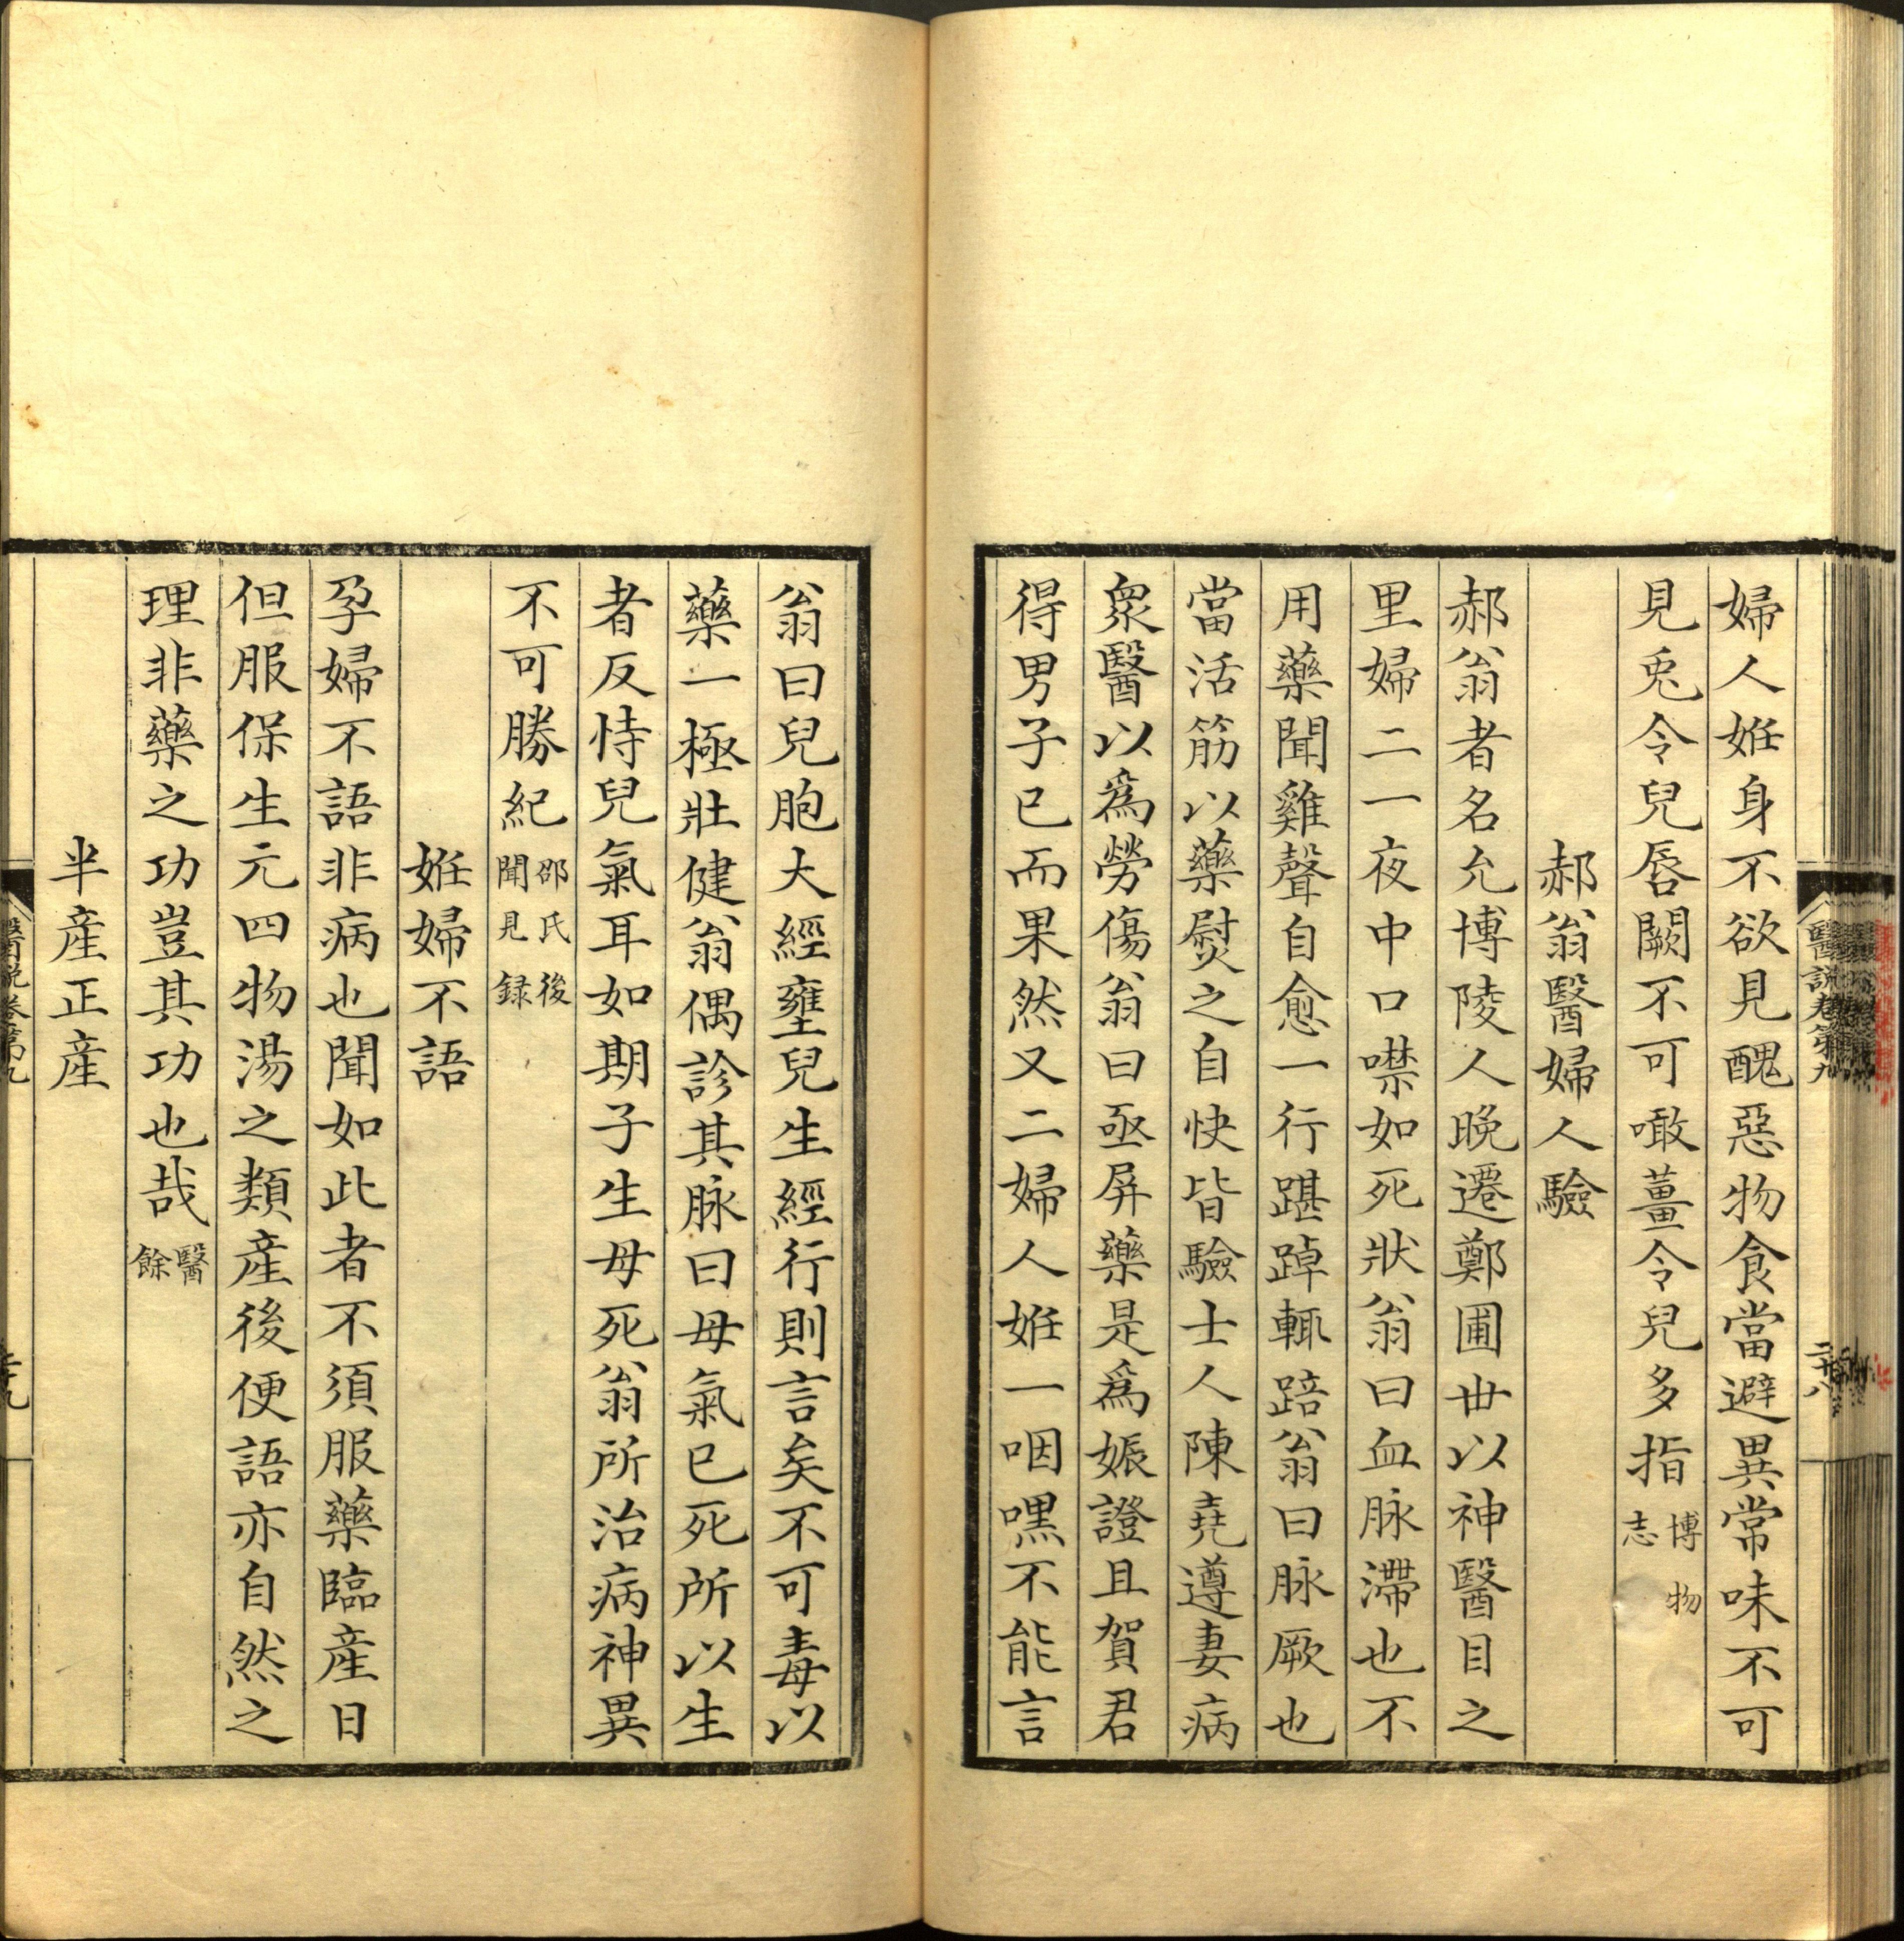 婦人姙身不欲見醜惡物食當避異常味不可
見兎令兒唇闕不可噉薑令兒多指博物志
郝翁醫婦人驗
郝翁者名允博陵人晚遷鄭圃世以神醫目之
里婦二一夜中口噤如死狀翁曰血脉滯也不
用藥聞雞聲自愈一行踸踔輒踣翁曰脉厥也
當活筋以藥熨之自快皆驗士人陳堯遵妻病
衆醫以爲勞傷翁曰亟屏藥是爲娠證且賀君
得男子已而果然又二婦人姙一咽嘿不能言
翁曰兒胞大經壅兒生經行則言矣不可毒以
藥一極壯健翁偶診其脉曰母氣已死所以生
者反恃兒氣耳如期子生母死翁所治病神異
不可勝紀邵氏後聞見録
姙婦不語
孕婦不語非病也聞如此者不須服藥臨産日
但服保生元四物湯之類産後便語亦自然之
理非藥之功豈其功也哉醫餘
半産正産
醫説卷第九
二十八
醫説卷第九
二十九